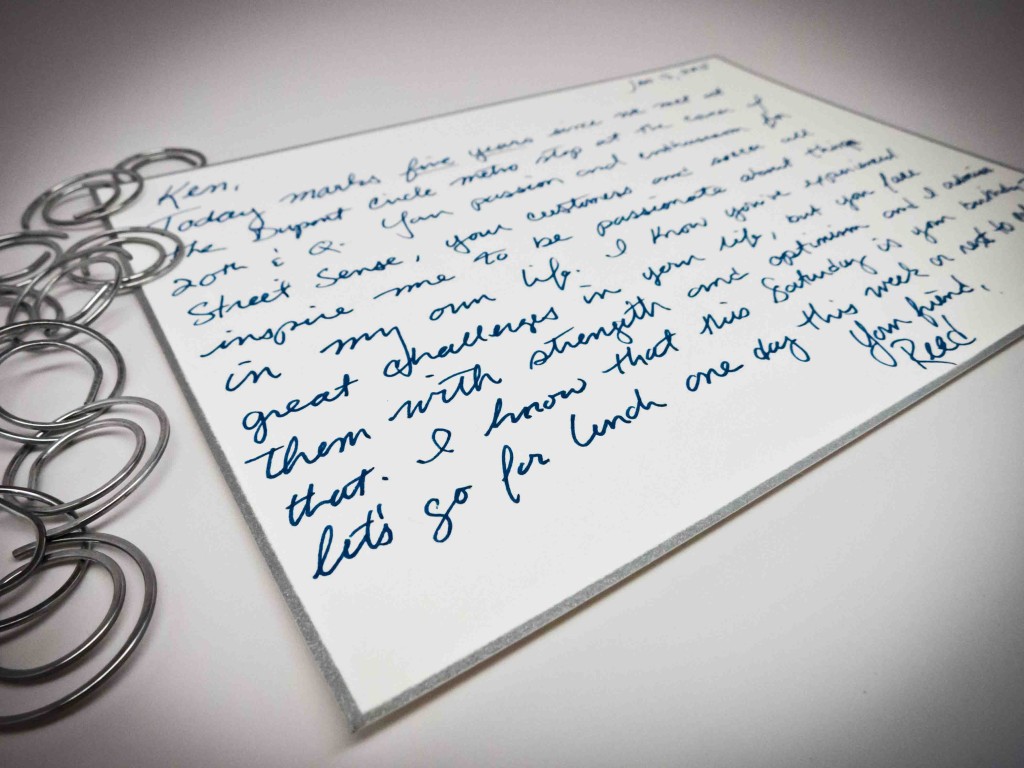 Jan
Ken,
Today marks five years since we met at
the Dupont Circle metro stop at the corner of
20th & Q. Your passion and enthusiasm for
Street Sense, your customers and soccer all
inspire me to be passionate about things
in my own life. I know you've experienced
great challenges in your life, but you face
them with strength and optimism and I admire
that. I know that this Saturday is your birthday
let's go for lunch one day this week or next to
Your friend,
Reed